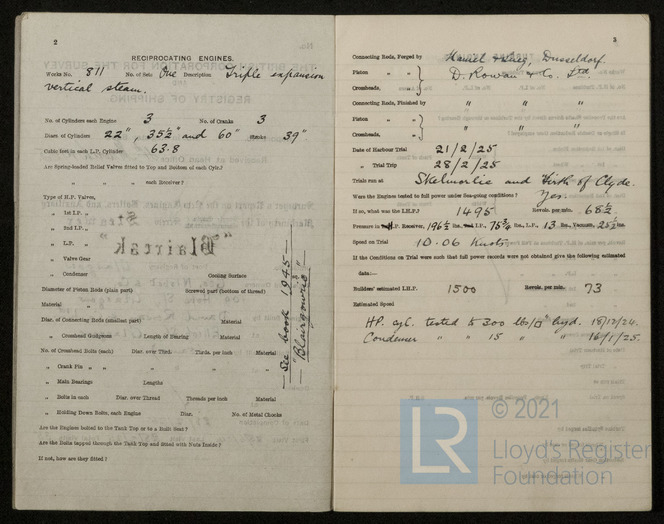 2
RECIPROCATING ENGINES.
Works No. 811 No. of Sets One Description Triple expansion
vertical steam.
No. of Cylinders each Engine 3 No. of Cranks 3
Diars. of Cylinders 22", 35½" and 60" Stroke 39"
Cubic feet in each L.P. Cylinder 63.8
Are Spring-loaded Relief Valves fitted to Top and Bottom of each Cylr.?
" " " each Receiver?
Type of H.P. Valves,
" 1st I.P. "
" 2nd I.P. "
" L.P. "
" Valve Gear
" Condenser Cooling Surface
Diameter of Piston Rods (plain part) Screwed part (bottom of thread)
Material "
Diar. of Connecting Rods (smallest part) Material
" Crosshead Gudgeons Length of Bearing Material
No. of Crosshead Bolts (each) Diar. over Thrd. Thrds. per inch Material
" Crank Pin " " " "
" Main Bearings Lengths
" Bolts in each Diar. over Thread Threads per inch Material
" Holding Down Bolts, each Engine Diar. No. of Metal Chocks
Are the Engines bolted to the Tank Top or to a Built Seat?
Are the Bolts tapped through the Tank Top and fitted with Nuts Inside?
If not, how are they fitted?
— See book 1945 —
— "Blairgowrie" —
"Blairesk"
3
Connecting Rods, Forged by Dusseldorf.
Piston " " D. Rowan & Co. Ltd
Crossheads, "
Connecting Rods, Finished by " "
Piston " " " "
Crossheads, " " "
Date of Harbour Trial 21/2/25
" Trial Trip 28/2/25
Trials run at Skelmorlie and Firth of Clyde.
Were the Engines tested to full power under Sea-going conditions? Yes.
If so, what was the I.H.P.? 1495 Revols. per min. 68½
Pressure in I.P. Receiver, 196½ lbs., I.P., 75¾ lbs., L.P., 13 lbs., Vacuum, 25½ ins.
Speed on Trial 10.06 Knots.
If the Conditions on Trial were such that full power records were not obtained give the following estimated
data:—
Builders' estimated I.H.P. 1500 Revols. per min. 73
Estimated Speed
HP. cyl. tested to 300 lbs/□" hyd. 18/12/24.
Condenser " " 15 " " 16/1/25.
© 2021
LR
Lloyd's Register
Foundation